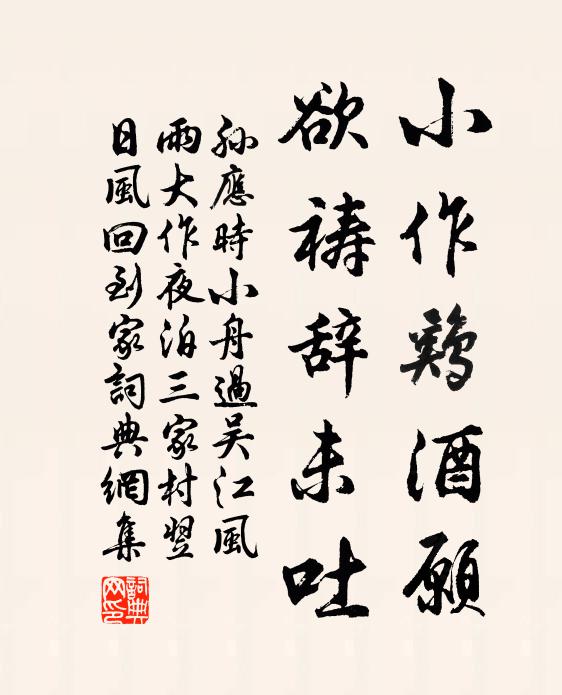 小作鷄酒願
欲禱辞未吐
孙應時小舟過吴江風
雨大作夜泊三家村翌
日風回到家詞典網集
詞典
网印